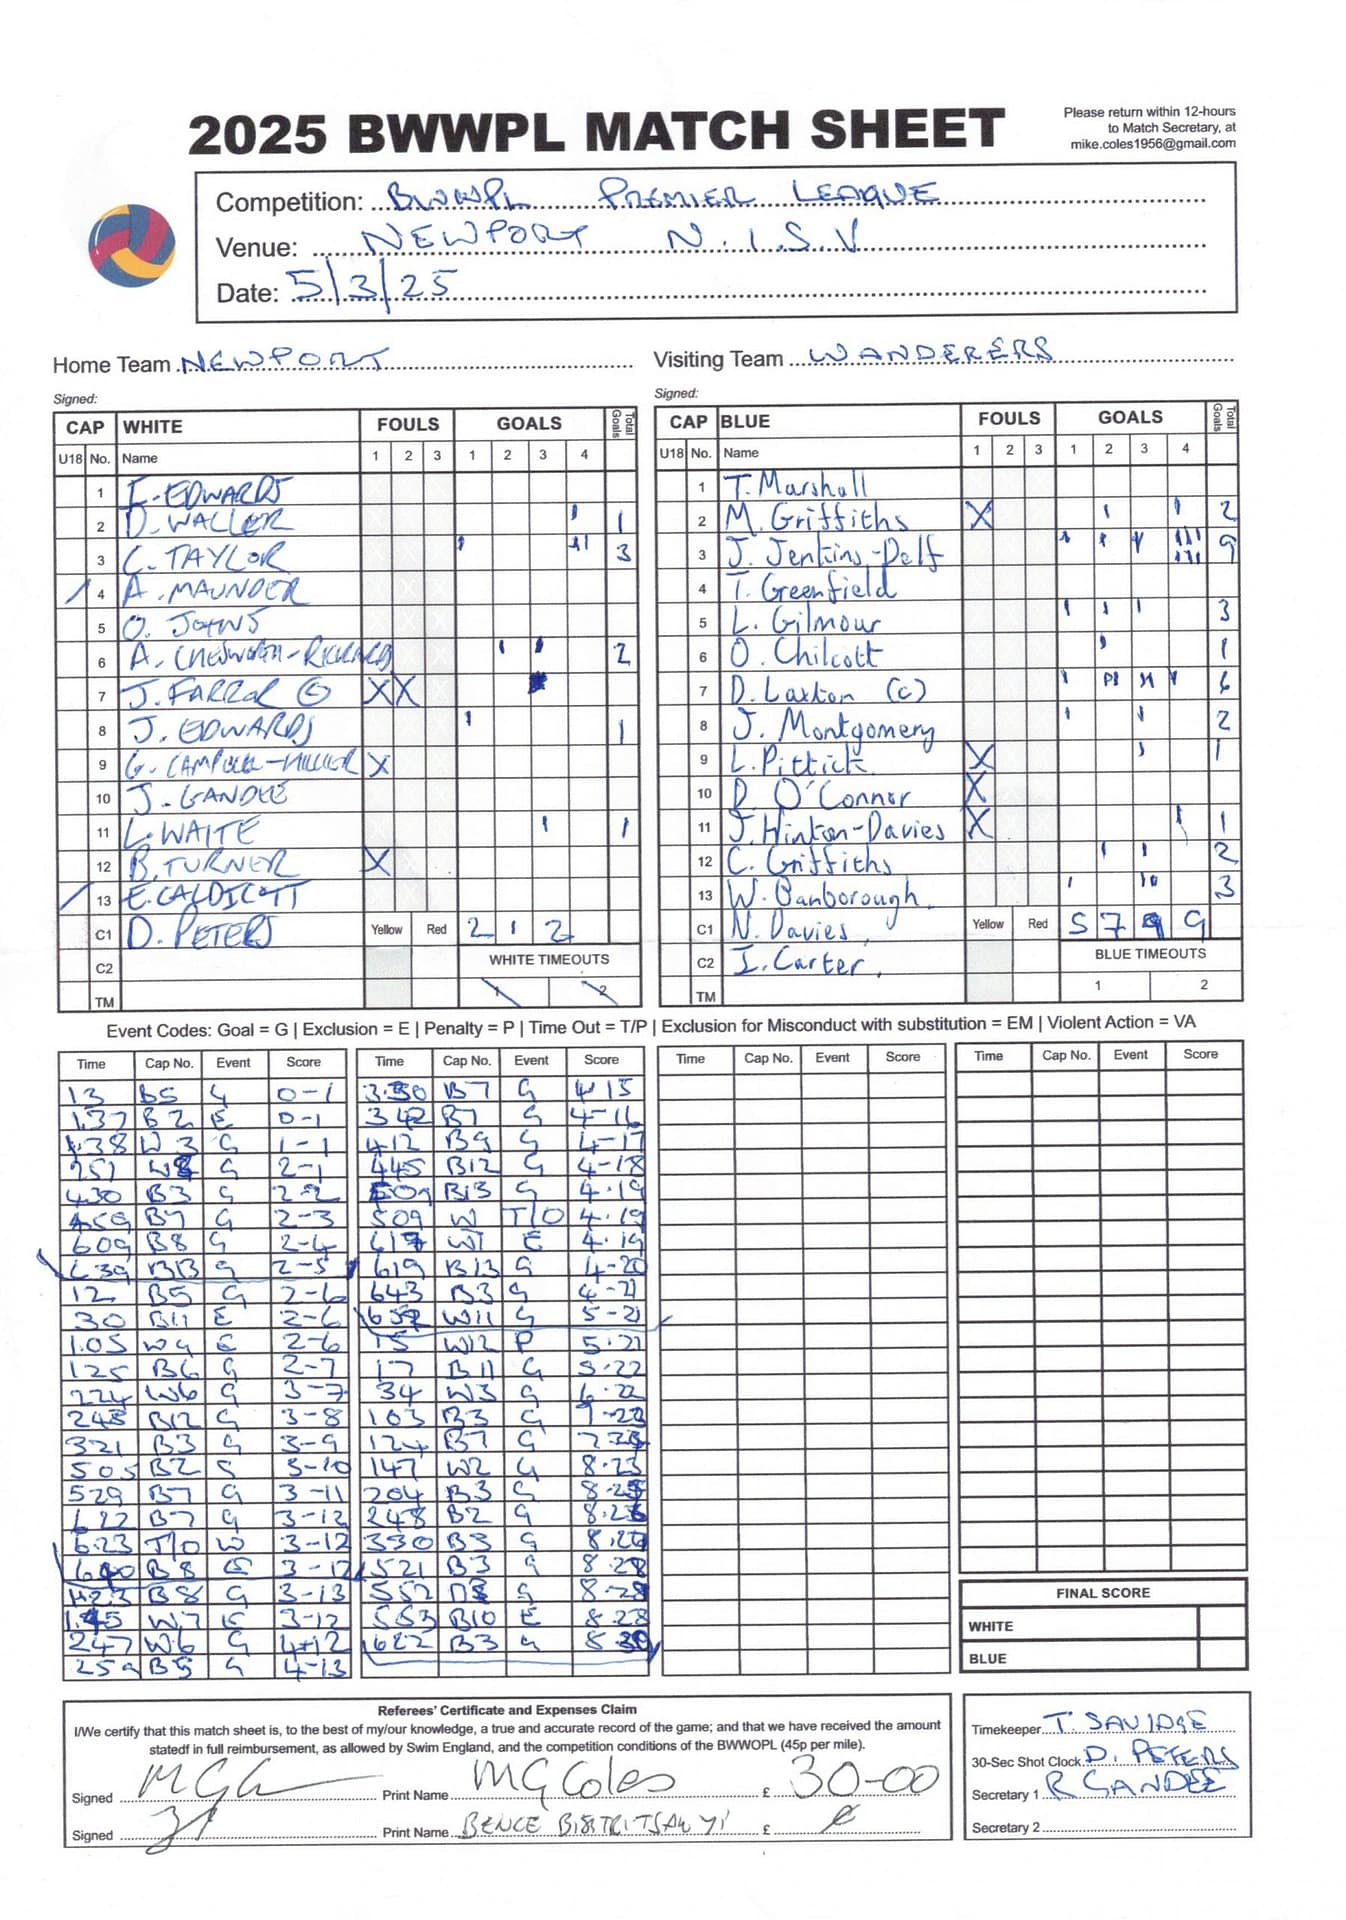 2025 BWWPL MATCH SHEET
Please return within 12-hours
to Match Secretary, at
mike.coles1956@gmail.com
Competition: BWWPL PREMIER LEAGUE
Venue: NEWPORT N.I.S.V
Date: 5/3/25
Home Team NEWPORT
Visiting Team WANDERERS
Signed:
Signed:
CAP WHITE FOULS GOALS Total Goals
U18 No. Name 1 2 3 1 2 3 4
1 I. EDWARDS
2 D. WALLER 1
3 C. TAYLOR 3
4 A. MAUNDER
5 O. JOHNS
6 A. CHESWORTH-RICHARDS 2
7 J. FARROR C X X
8 J. EDWARDS 1
9 G. CAMPBELL-HILLIER X
10 J. GANDEE
11 L. WAITE 1
12 B. TURNER X
13 E. CALDICOTT
C1 D. PETERS Yellow Red 2 1 2
C2 WHITE TIMEOUTS
TM 1 2
CAP BLUE FOULS GOALS Total Goals
U18 No. Name 1 2 3 1 2 3 4
1 T. Marshall
2 M. Griffiths X 2
3 J. Jenkins-Delf 9
4 T. Greenfield
5 L. Gilmour 3
6 O. Chilcott 1
7 D. Laxton (c) 6
8 J. Montgomery 2
9 L. Pittick X 1
10 D. O'Connor X
11 J. Hinton-Davies X 1
12 C. Griffiths 2
13 W. Banborough. 3
C1 N. Davies, Yellow Red 5 7 9 9
C2 I. Carter, BLUE TIMEOUTS
TM 1 2
Event Codes: Goal = G | Exclusion = E | Penalty = P | Time Out = T/P | Exclusion for Misconduct with substitution = EM | Violent Action = VA
Time Cap No. Event Score
13 B5 G 0-1
1.37 B2 E 0-1
1.38 W3 G 1-1
251 W8 G 2-1
430 B3 G 2-2
459 B7 G 2-3
609 B8 G 2-4
639 B13 G 2-5
12 B5 G 2-6
30 B11 E 2-6
1.05 W9 E 2-6
125 B6 G 2-7
224 W6 G 3-7
248 B12 G 3-8
321 B3 G 3-9
505 B2 G 3-10
529 B7 G 3-11
622 B7 G 3-12
6.23 T/O W 3-12
640 B8 3-12
B8 G 3-13
1.45 W7 E 3-12
247 W6 G 4-12
259 B5 G 4-13
Time Cap No. Event Score
3.30 B7 G 4 15
342 B7 G 4-16
412 B9 G 4-17
445 B12 G 4-18
509 B13 G 4.19
509 W T/O 4.19
617 W7 E 4.19
619 B13 G 4-20
643 B3 G 4-21
652 W11 G 5-21
15 W12 P 5.21
17 B11 G 5.22
34 W3 G 6.22
103 B3 G
124 B7 G
147 W2 G 8.23
204 B3 G 8.25
248 B2 G 8.26
330 B3 G
521 B3 G 8.28
552 G
553 B10 E 8.28
622 B3 G 8 30
Time Cap No. Event Score
Time Cap No. Event Score
FINAL SCORE
WHITE
BLUE
Referees' Certificate and Expenses Claim
I/We certify that this match sheet is, to the best of my/our knowledge, a true and accurate record of the game; and that we have received the amount
statedf in full reimbursement, as allowed by Swim England, and the competition conditions of the BWWOPL (45p per mile).
Signed Print Name MG Coles £ 30-00
Signed Print Name BENCE £
Timekeeper T. SAVIDGE
30-Sec Shot Clock D. PETERS
Secretary 1 R GANDEE
Secretary 2